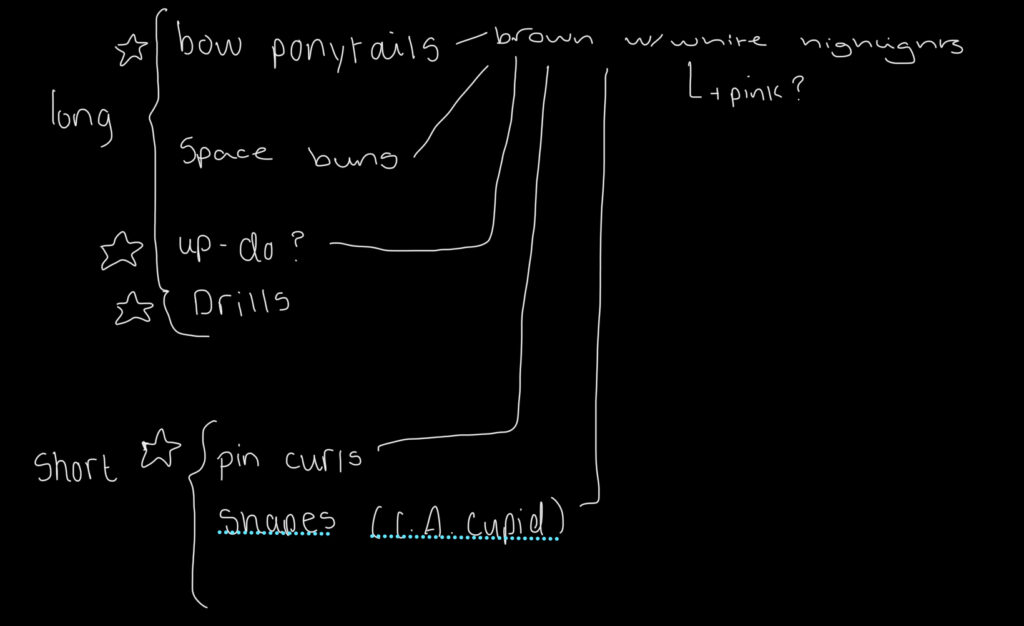 bow ponytails - brown w/ white highlights
L + pink?
long
Space buns
up-do?
Drills
short
pin curls
Shapes (C.A. Cupid)